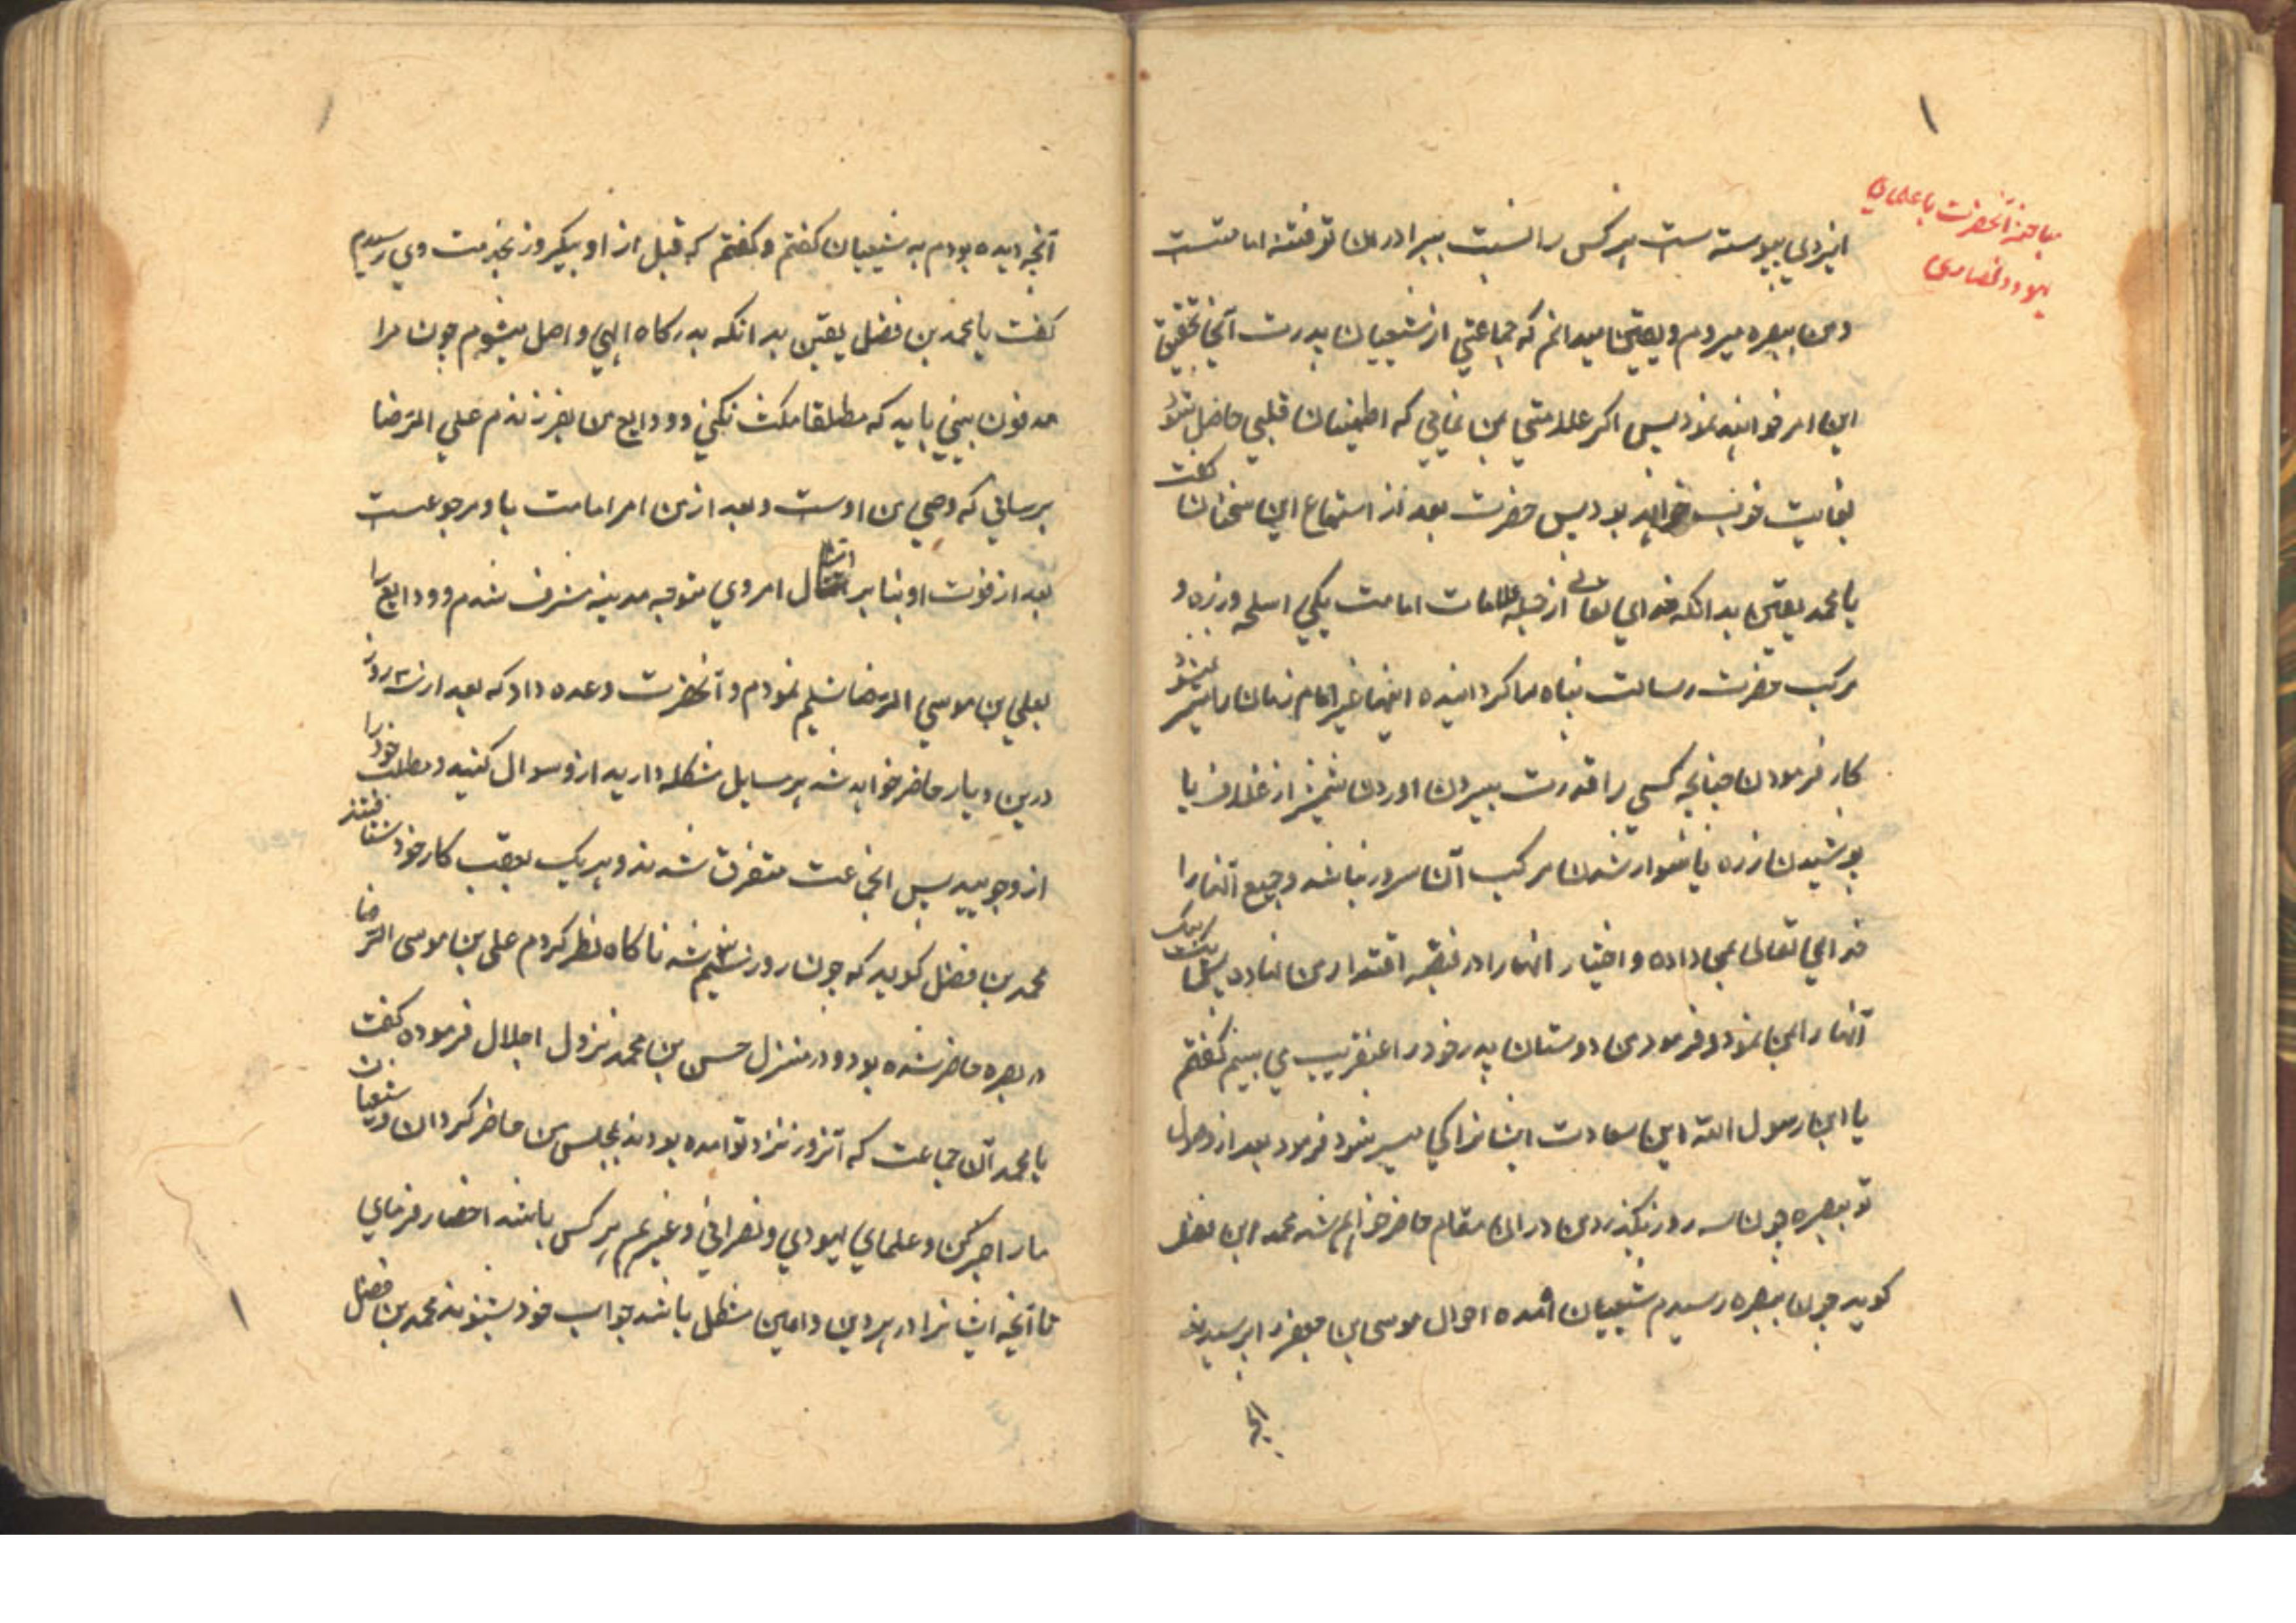 مباحثه آنحضرت با علمای
یهود و نصاری
ایزدی پیوسته است هر کس را نسبت ببرادران تو فتنه امامتست
و من ببصره میروم و یقین میدانم که جماعتی از شیعیان پدرت آنجا تحقیق
این امر خواهند نمود پس اگر علامتی بمن نمایی که اطمینان قلبی حاصل شود
بغایت خوب خواهد بود پس حضرت بعد از استماع این سخنان گفت
یا محمد یقین بدانکه خدای تعالی از جمله علامات امامت یکی اسلحه و زره و
مرکب حضرت رسالت پناه را گردانیده اینها غیر امام زمان را میسر نمیشود
کار فرمودن چنانچه کسی را قدرت بیرون اوردن شمشیر از غلاف یا
پوشیدن زره یا سوار شدن مرکب آن سرور نباشد و جمیع آنها را
خدای تعالی بمن داده و اختیار انها را در قبضه اقتدار من نهاده پس یک یک
آنها را بمن نمود و فرمود من دوستان پدر خود را عنقریب می بینم گفتم
یا ابن رسول الله این سعادت ایشانرا کی میسر شود فرمود بعد از دخول
تو ببصره چون سه روز بگذرد من در ان مقام حاضر خواهم شد محمد ابن فضل
گوید چون ببصره رسیدم شیعیان آمده احوال موسی بن جعفر را پرسیدند
آنچه
آنچه دیده بودم به شیعیان گفتم و گفتم که قبل از او بیکروز بخدمت وی رسیدم
گفت یا محمد بن فضل یقین بدانکه بدرکاه الهی واصل میشوم چون مرا
مدفون بینی باید که مطلقا مکث نکنی و ودایع من بفرزندم علی الرضا
برسانی که وصی من اوست و بعد از من امر امامت باو مرجوعست
بعد از فوت او بنا بر امتثال امر وی متوجه مدینه مشرف شدم و ودایع را
بعلی بن موسی الرضا تسلیم نمودم و آنحضرت وعده داد که بعد از سه روز
درین دیار حاضر خواهد شد هر مسایل مشکله دارید ازو سوال کنید و مطلب خود را
ازو جویید پس انجماعت متفرق شدند و هر یک بعقب کار خود شتافتند
محمد بن فضل گوید که چون روز سیم شد ناگاه نظر کردم علی بن موسی الرضا
در بصره حاضر شده بود و در منزل حسن بن محمد نزول اجلال فرموده گفت
یا محمد آن جماعت که آنروز نزد تو آمده بودند بمجلس من حاضر گردان و شیعیان
ما را خبر کن و علمای یهودی و نصرانی و غیرهم هر کس باشد احضار فرمای
تا آنچه ایشانرا در هر دین و ایین مشکل باشد جواب خود بشنوند محمد بن فضل